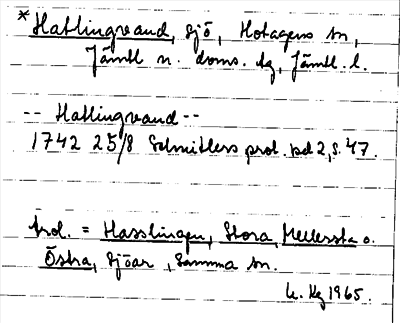 *Hatlingvand, sjö, Hotagens sn,
Jämtl n. doms. tg, Jämtl. l.
-- Hatlingvand --
1742 25/8 Schnitlers prot. bd 2, s. 47.
trol. = Hasslingen, Stora, Mellersta o.
Östra, sjöar, samma sn.
1965.